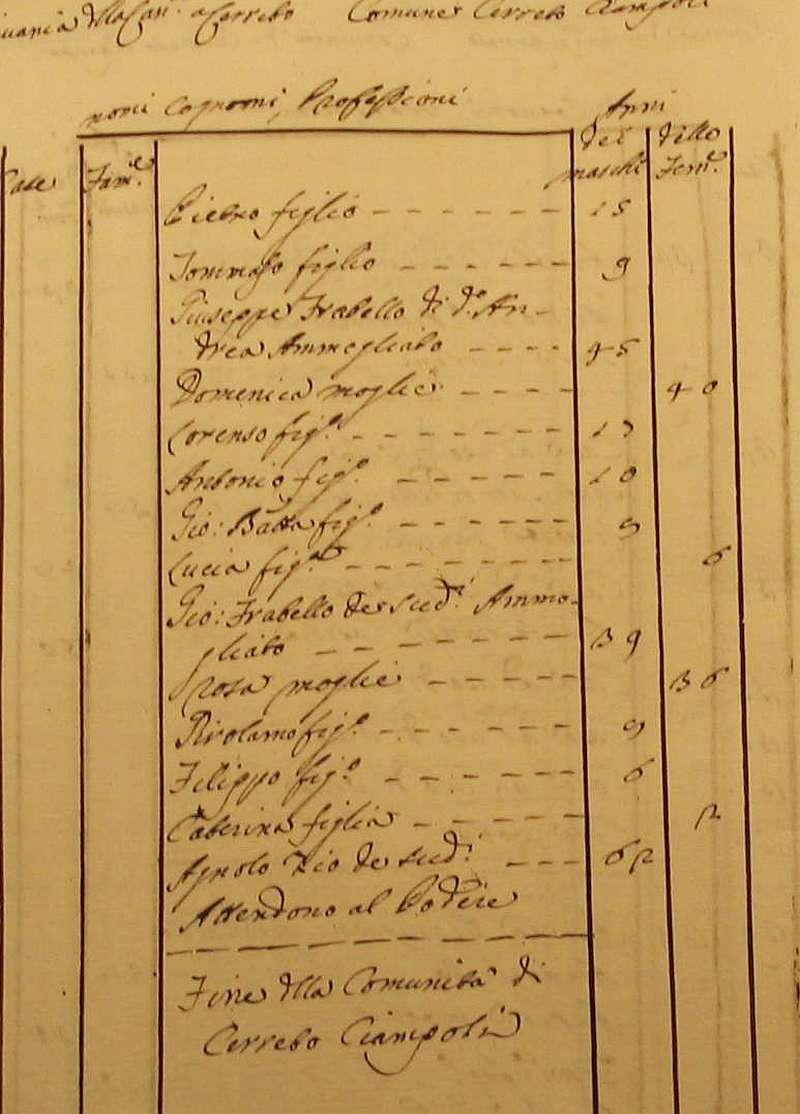 Comune Cerreto Ciampoli
nomi Cognomi, Professioni
Anni
dei detto
Case Fam.e maschi Fem.e
Pietro figlio - - - - - - 15
Tommaso figlio - - - - - 9
Giuseppe Fratello di d.o An-
drea Ammogliato - - - - 45
Domenica moglie - - - - 40
Lorenso fig.o - - - - - - 13
Antonio fig.o - - - - - 10
Gio: Batta fig.o - - - - - 9
Lucia fig.a - - - - - - 6
Gio: Fratello de Sud.i Ammo-
gliato - - - - - - 39
Rosa moglie - - - - 36
Girolamo fig.o - - - - - 9
Filippo fig.o - - - - - 6
Caterina figlia - - - - - 2
Agnolo Zio de sud.i - - - 62
Attendono al Podere
Fine della Comunità di
Cerreto Ciampoli